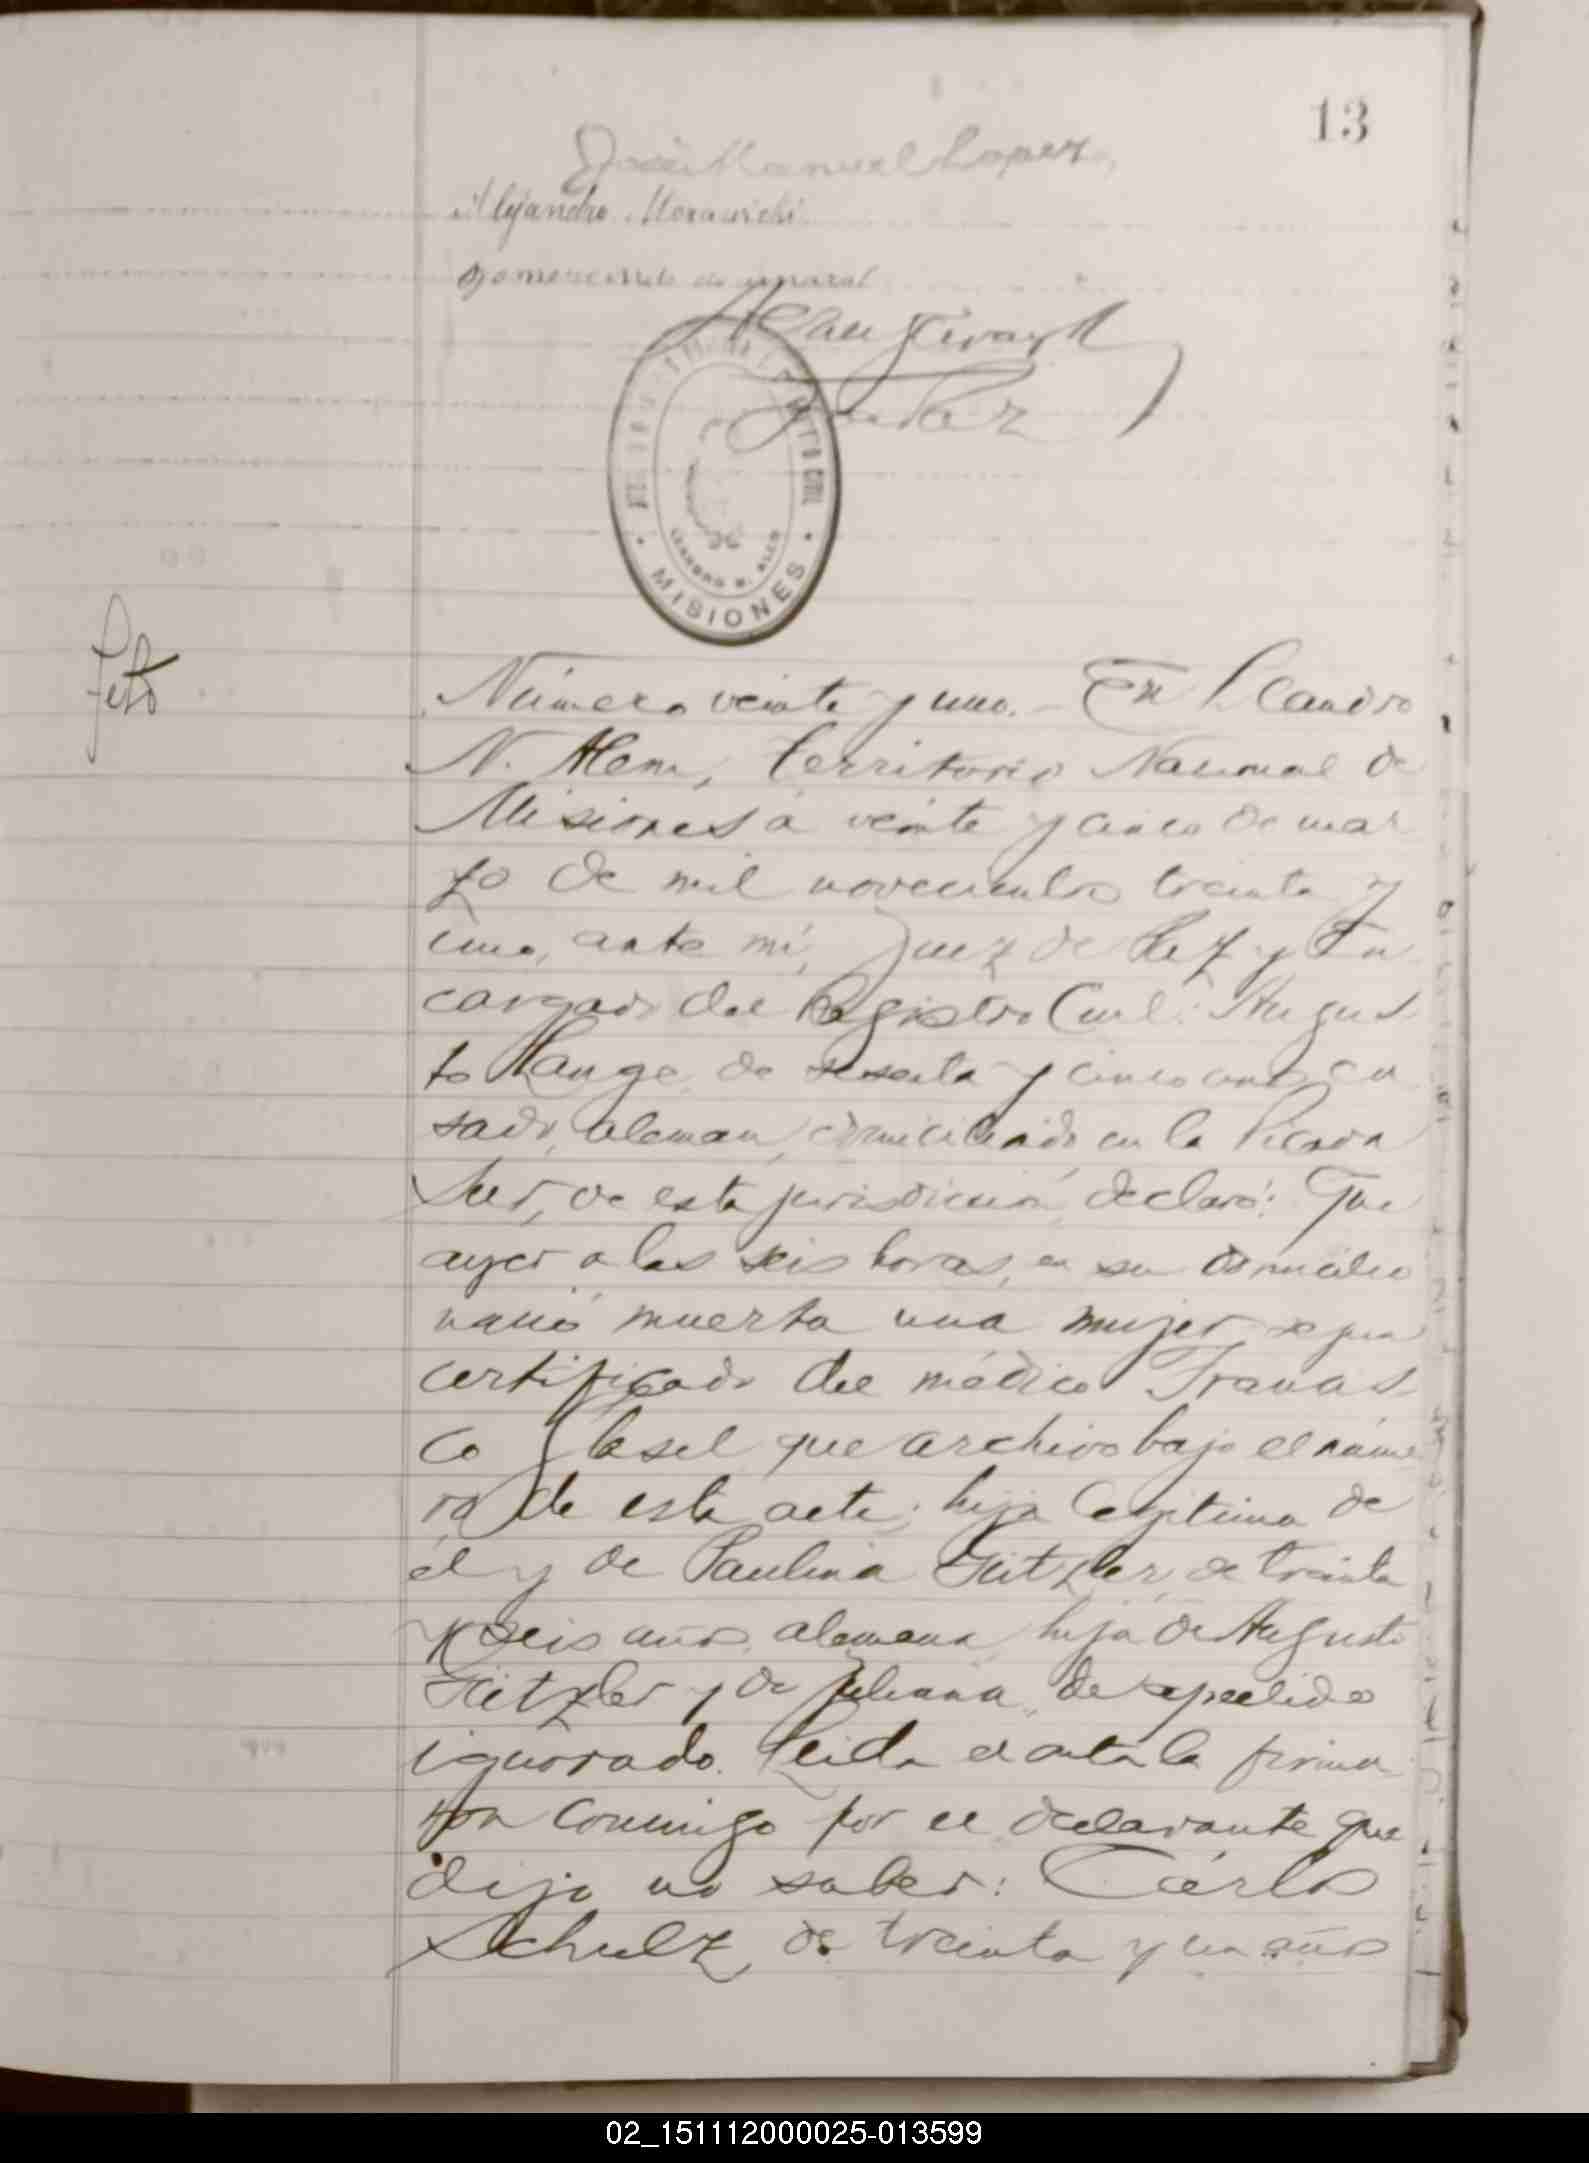 13
José Manuel Lopez
Alejandro Morawicki
Gomercindo do Amaral
Juez
REGISTRO CIVIL
LEANDRO N. ALEM
• MISIONES •
Feto
Número veinte y uno. – En Leandro
N. Alem, Territorio Nacional de
Misiones á veinte y cinco de mar
zo de mil novecientos treinta y
uno, ante mí, Juez de Paz y En
cargado del Registro Civil: Augus
to Lange, de sesenta y cinco años, ca
sado, aleman, domiciliado en la Picada
Sur, de esta jurisdicción, declaró: Que
ayer a las seis horas, en su domicilio
nació muerta una mujer, segun
certificado del médico Francis
co Glasel que archivo bajo el núme
ro de esta acta; hija legitima de
él y de Paulina Gützler, de treinta
y seis años, alemana, hija de Augusto
Gützler y de Juliana, de apellido
ignorado. Leida el acta la firma
ron conmigo por el declarante que
dijo no saber: Cárlos
Schulz, de treinta y un años
02_151112000025-013599